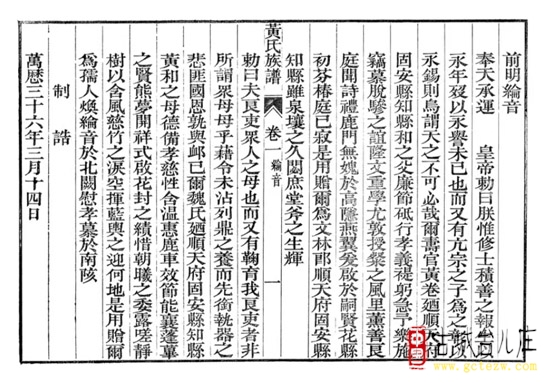 前明綸音
奉天承運　皇帝勅曰朕惟修士積善之報
永年茲以永譽未已也而又有亢宗之子為之
永錫則烏謂天之不可必哉爾壽官黃卷廼順天府
固安縣知縣和之父廉節砥行孝義禔躬急予樂施
竊慕脫驂之誼隆文重學尤敦授粲之風里薰善良
庭聞詩禮鹿門無媿於高隱燕翼爰啟於嗣賢花縣
初芬椿庭已寂是用贈爾為文林郎順天府固安縣
知縣雖泉壤之久閟庶堂斧之生輝
勅曰夫良吏眾人之母也而又有鞠育我良吏者非
所謂眾母母乎藉令未沾列鼎之養而先銜執器之
悲匪國恩孰與卹已爾魏氏廼順天府固安縣知縣
黃和之母德備孝慈性含溫惠鹿車效節能襄蓬蓽
之賢熊夢開祥式啟花封之績惜朝曦之委露嗟靜
樹以含風慈竹之淚空揮藍輿之迎何地是用贈爾
為孺人煥綸音於北闕慰孝慕於南陔
制誥
萬曆三十六年三月十四日
黃氏族譜
卷一
綸音
一
中國古城台儿庄
www.gctezw.com